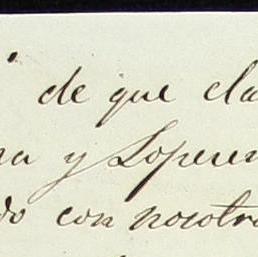 de que ela
na y Loperen
do con nosotro